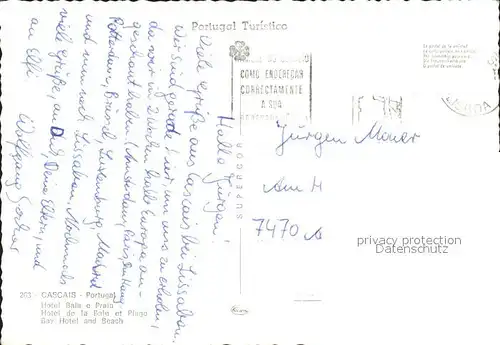 Portugal Turístico
COMO ENDEREÇAR
CORRECTAMENTE
A SUA
Hallo Jürgen!
Viele Grüße aus Cascais bei Lissabon.
Wir sind gerade hier, um uns zu erholen,
da wir in 2 Wochen halb Europa an-
geschaut haben (Amsterdam, Paris, Den Haag
Rotterdam, Brüssel, Luxemburg, Madrid
und nun noch Lissabon. Nochmals
viele Grüße, an Dich, Deine Eltern, und
an Elfi
Wolfgang
Jürgen Mauer
Am H
7470 A
privacy protection
Datenschutz
203 - CASCAIS - Portugal
Hotel Baía e Praia
Hotel de la Baie et Plage
Bay Hotel and Beach